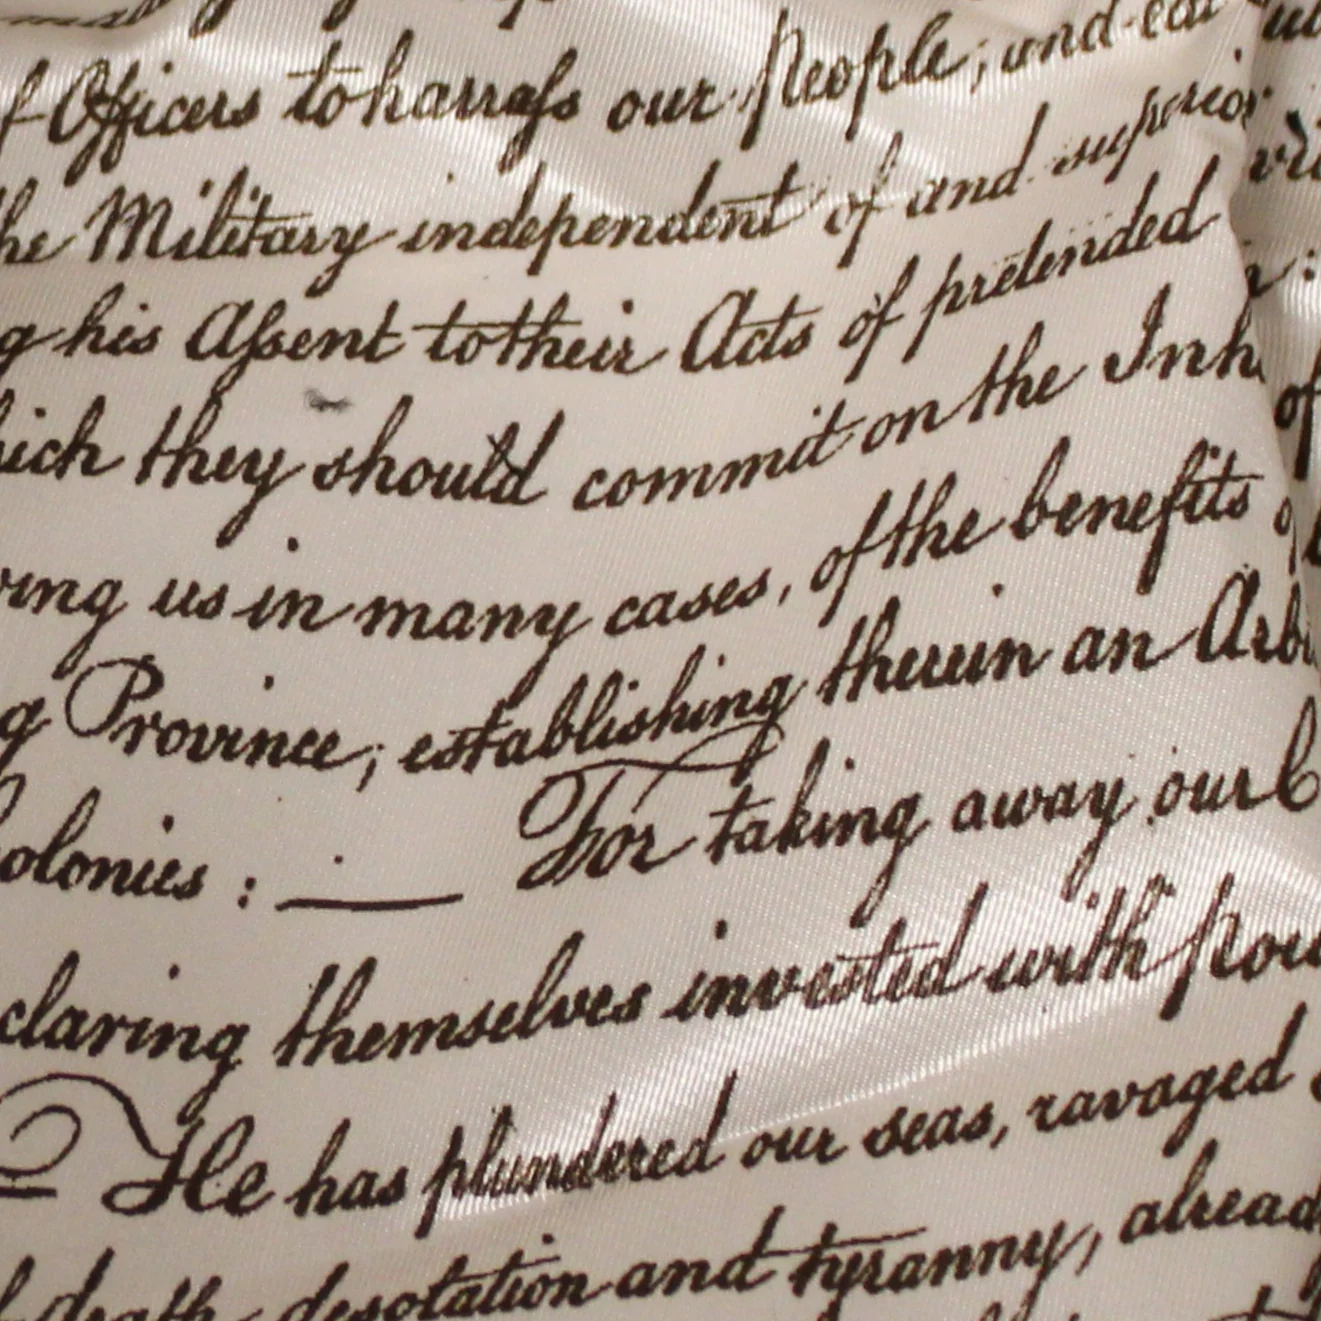 Officers to harraſs our People, and eat
he Military independent of and superior
g his Aſsent to their Acts of pretended
hich they should commit on the Inh
ving us in many cases, of the benefits
g Province, establishing therein an Arb
olonies : — For taking away our C
claring themselves invested with pow
He has plundered our seas, ravaged
death, desolation and tyranny, alread